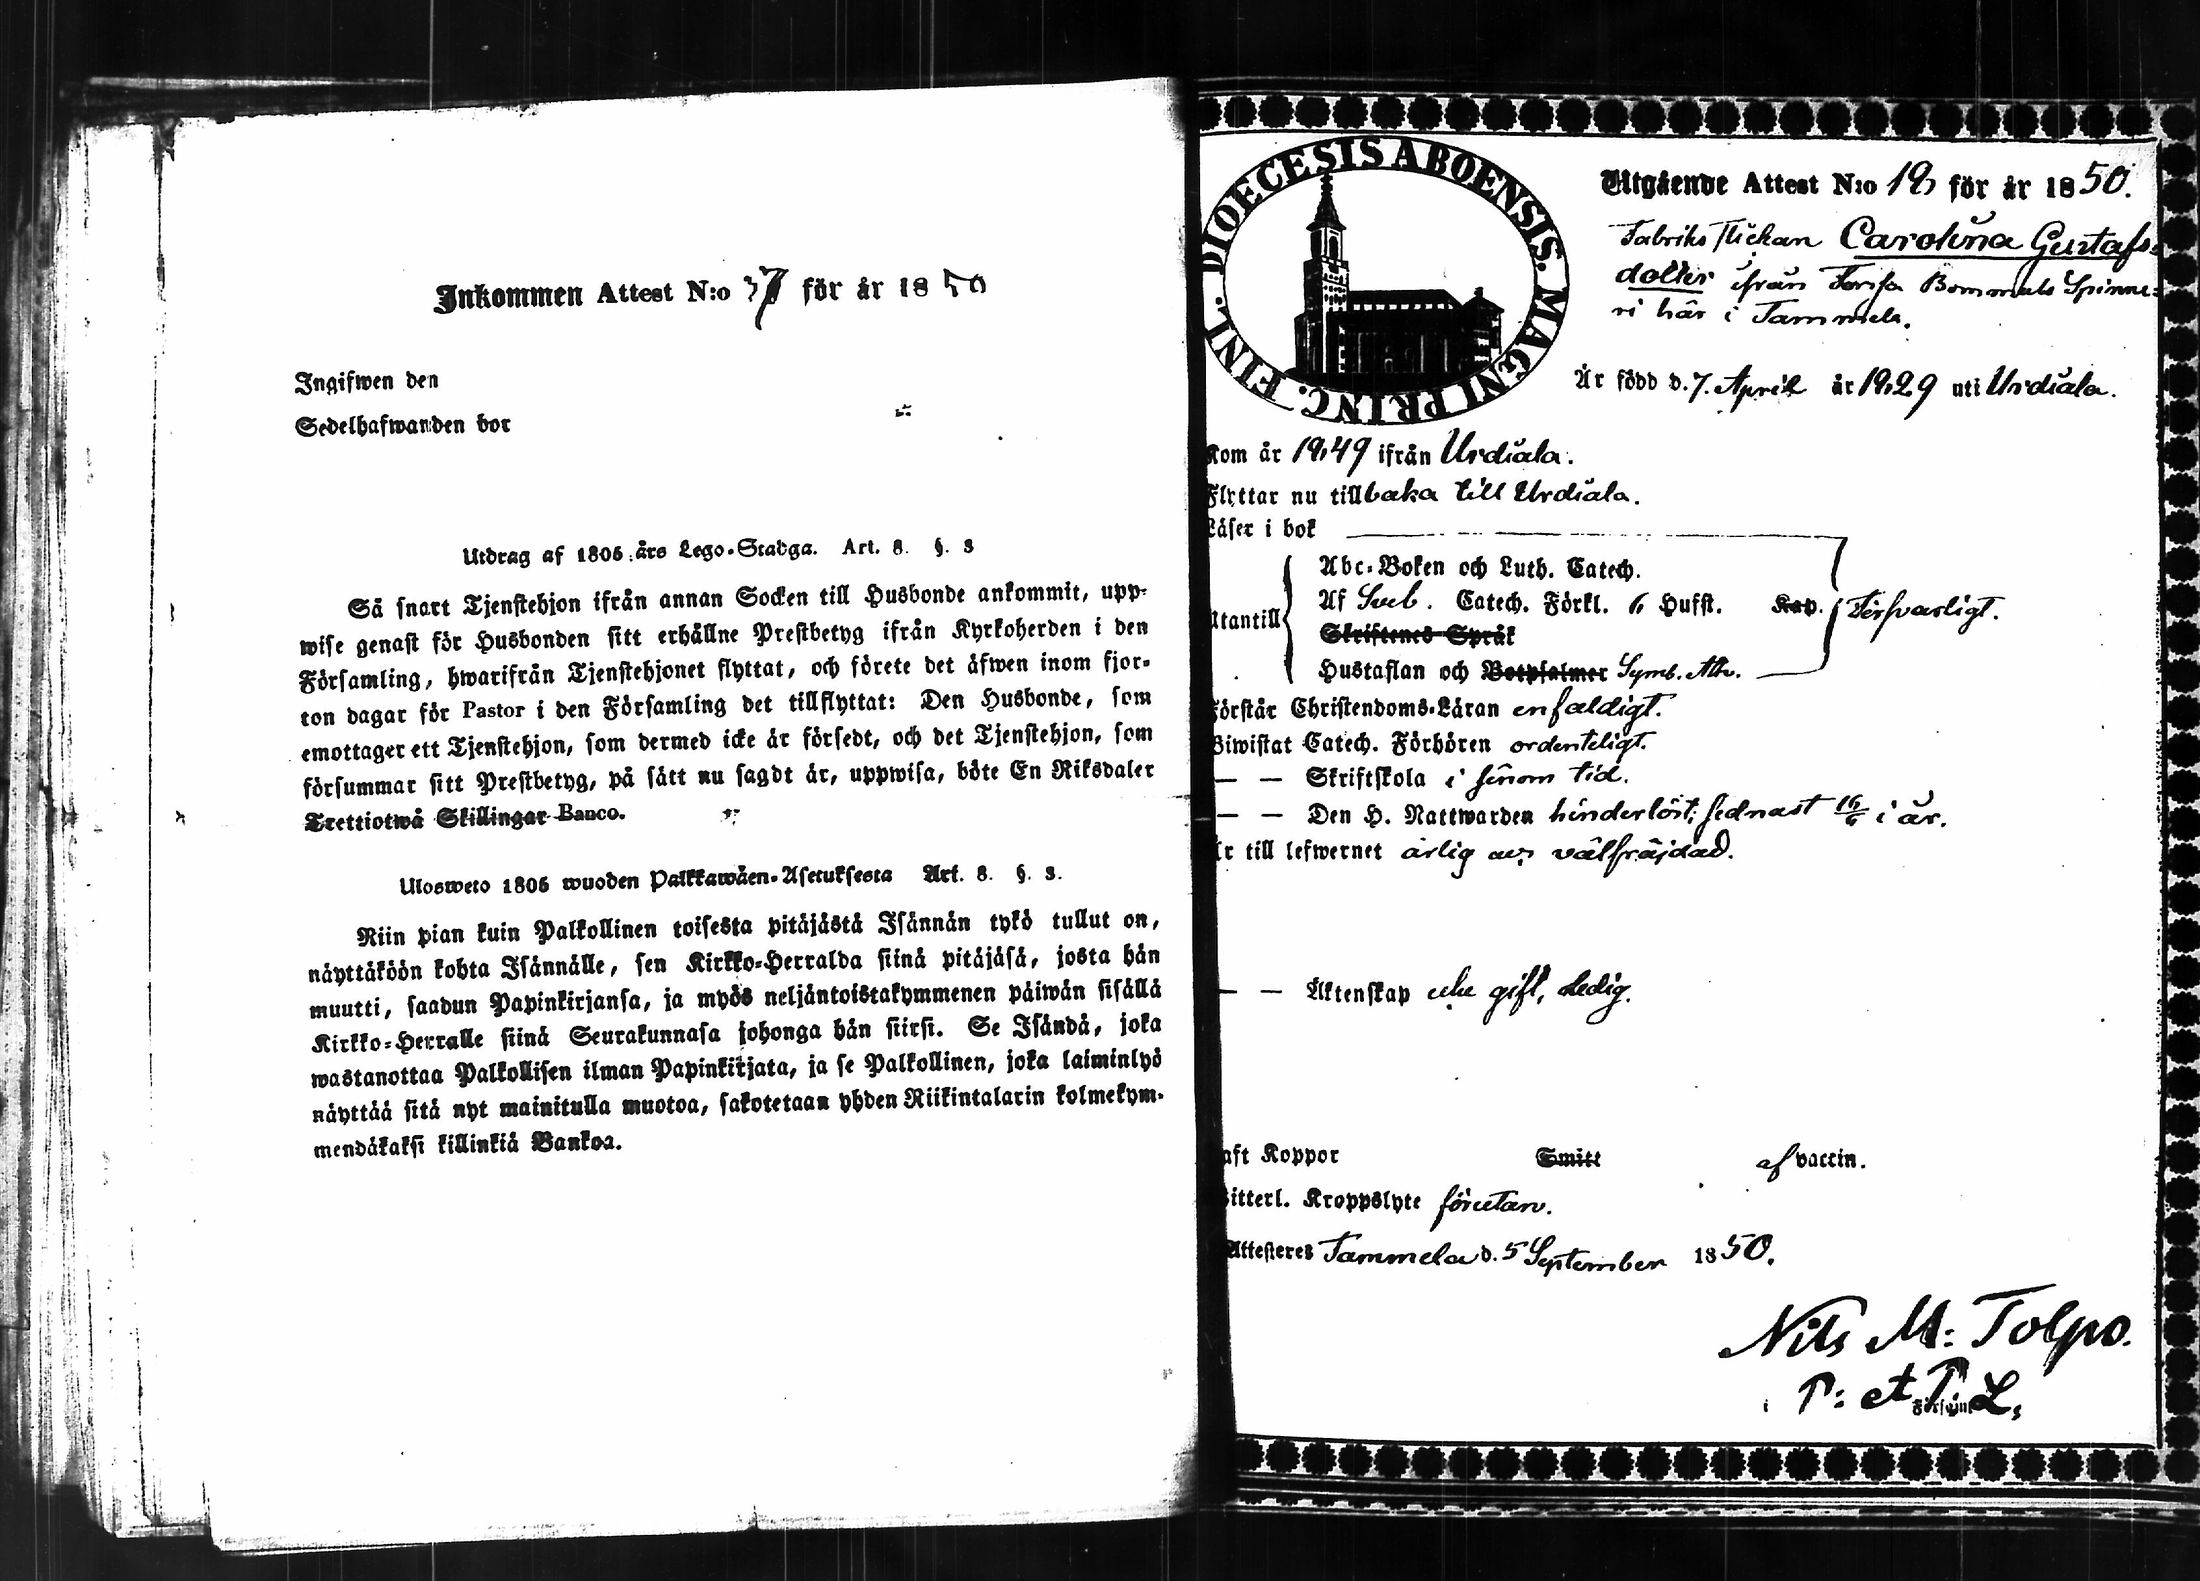 Inkommen Attest N:o 37 för år 1850
Ingifwen den
Sedelhafwanden bor
Utdrag af 1805 års Lego-Stadga. Art. 8. §. 3
Så snart Tjenstehjon ifrån annan Socken till Husbonde ankommit, upp-
wise genast för Husbonden sitt erhållne Prestbetyg ifrån Kyrkoherden i den
Församling, hwarifrån Tjenstehjonet flyttat, och förete det äfwen inom fjor-
ton dagar för Pastor i den Församling det tillflyttat: Den Husbonde, som
emottager ett Tjenstehjon, som dermed icke är försedt, och det Tjenstehjon, som
försummar sitt Prestbetyg, på sätt nu sagdt är, uppwisa, böte En Riksdaler
Trettiotwå Skillingar Banco.
Ulosweto 1805 wuoden Palkkawäen-Asetuksesta Art. 8. §. 3.
Niin pian kuin Palkollinen toisesta pitäjästä Isännän tykö tullut on,
näyttäköön kohta Isännälle, sen Kirkko-Herralda siinä pitäjäsä, josta hän
muutti, saadun Papinkirjansa, ja myös neljäntoistakymmenen päiwän sisällä
Kirkko-Herralle siinä Seurakunnasa johonga hän siirsi. Se Isändä, joka
wastanottaa Palkollisen ilman Papinkirjata, ja se Palkollinen, joka laiminlyö
näyttää sitä nyt mainitulla muotoa, sakotetaan yhden Riikintalarin kolmekym-
mendäkaksi killinkiä Bankoa.
DIOECESIS ABOENSIS. MAGNI PRINC. FINL.
Utgående Attest N:o 18 för år 1850.
Fabriks flickan Carolina Gustafs-
dotter ifrån Forssa Bommuls Spinne-
ri här i Tammela.
Är född d. 7. April år 1829 uti Urdiala.
Kom år 1849 ifrån Urdiala.
Flyttar nu tillbaka till Urdiala.
Läser i bok
Abc-Boken och Luth. Catech.
Af Sveb. Catech. Förkl. 6 Hufst. Kap.
Utantill
Försvarligt.
Skriftenes Språk
Hustaflan och Botpsalmer Symb. Ath.
Förstår Christendoms-Läran enfaldigt.
Biwistat Catech. Förhören ordenteligt.
— — Skriftskola i sinom tid.
— — Den H. Nattwarden hinderlöst; sednast 16/6 i år.
Är till lefwernet ärlig och välfräjdad.
— — Äktenskap icke gift, ledig.
Haft Koppor Smitt af vaccin.
Witterl. Kroppslyte förutan.
Attesteres Tammela d. 5 September 1850.
Nils M: Tolpo.
i P: et P. L.